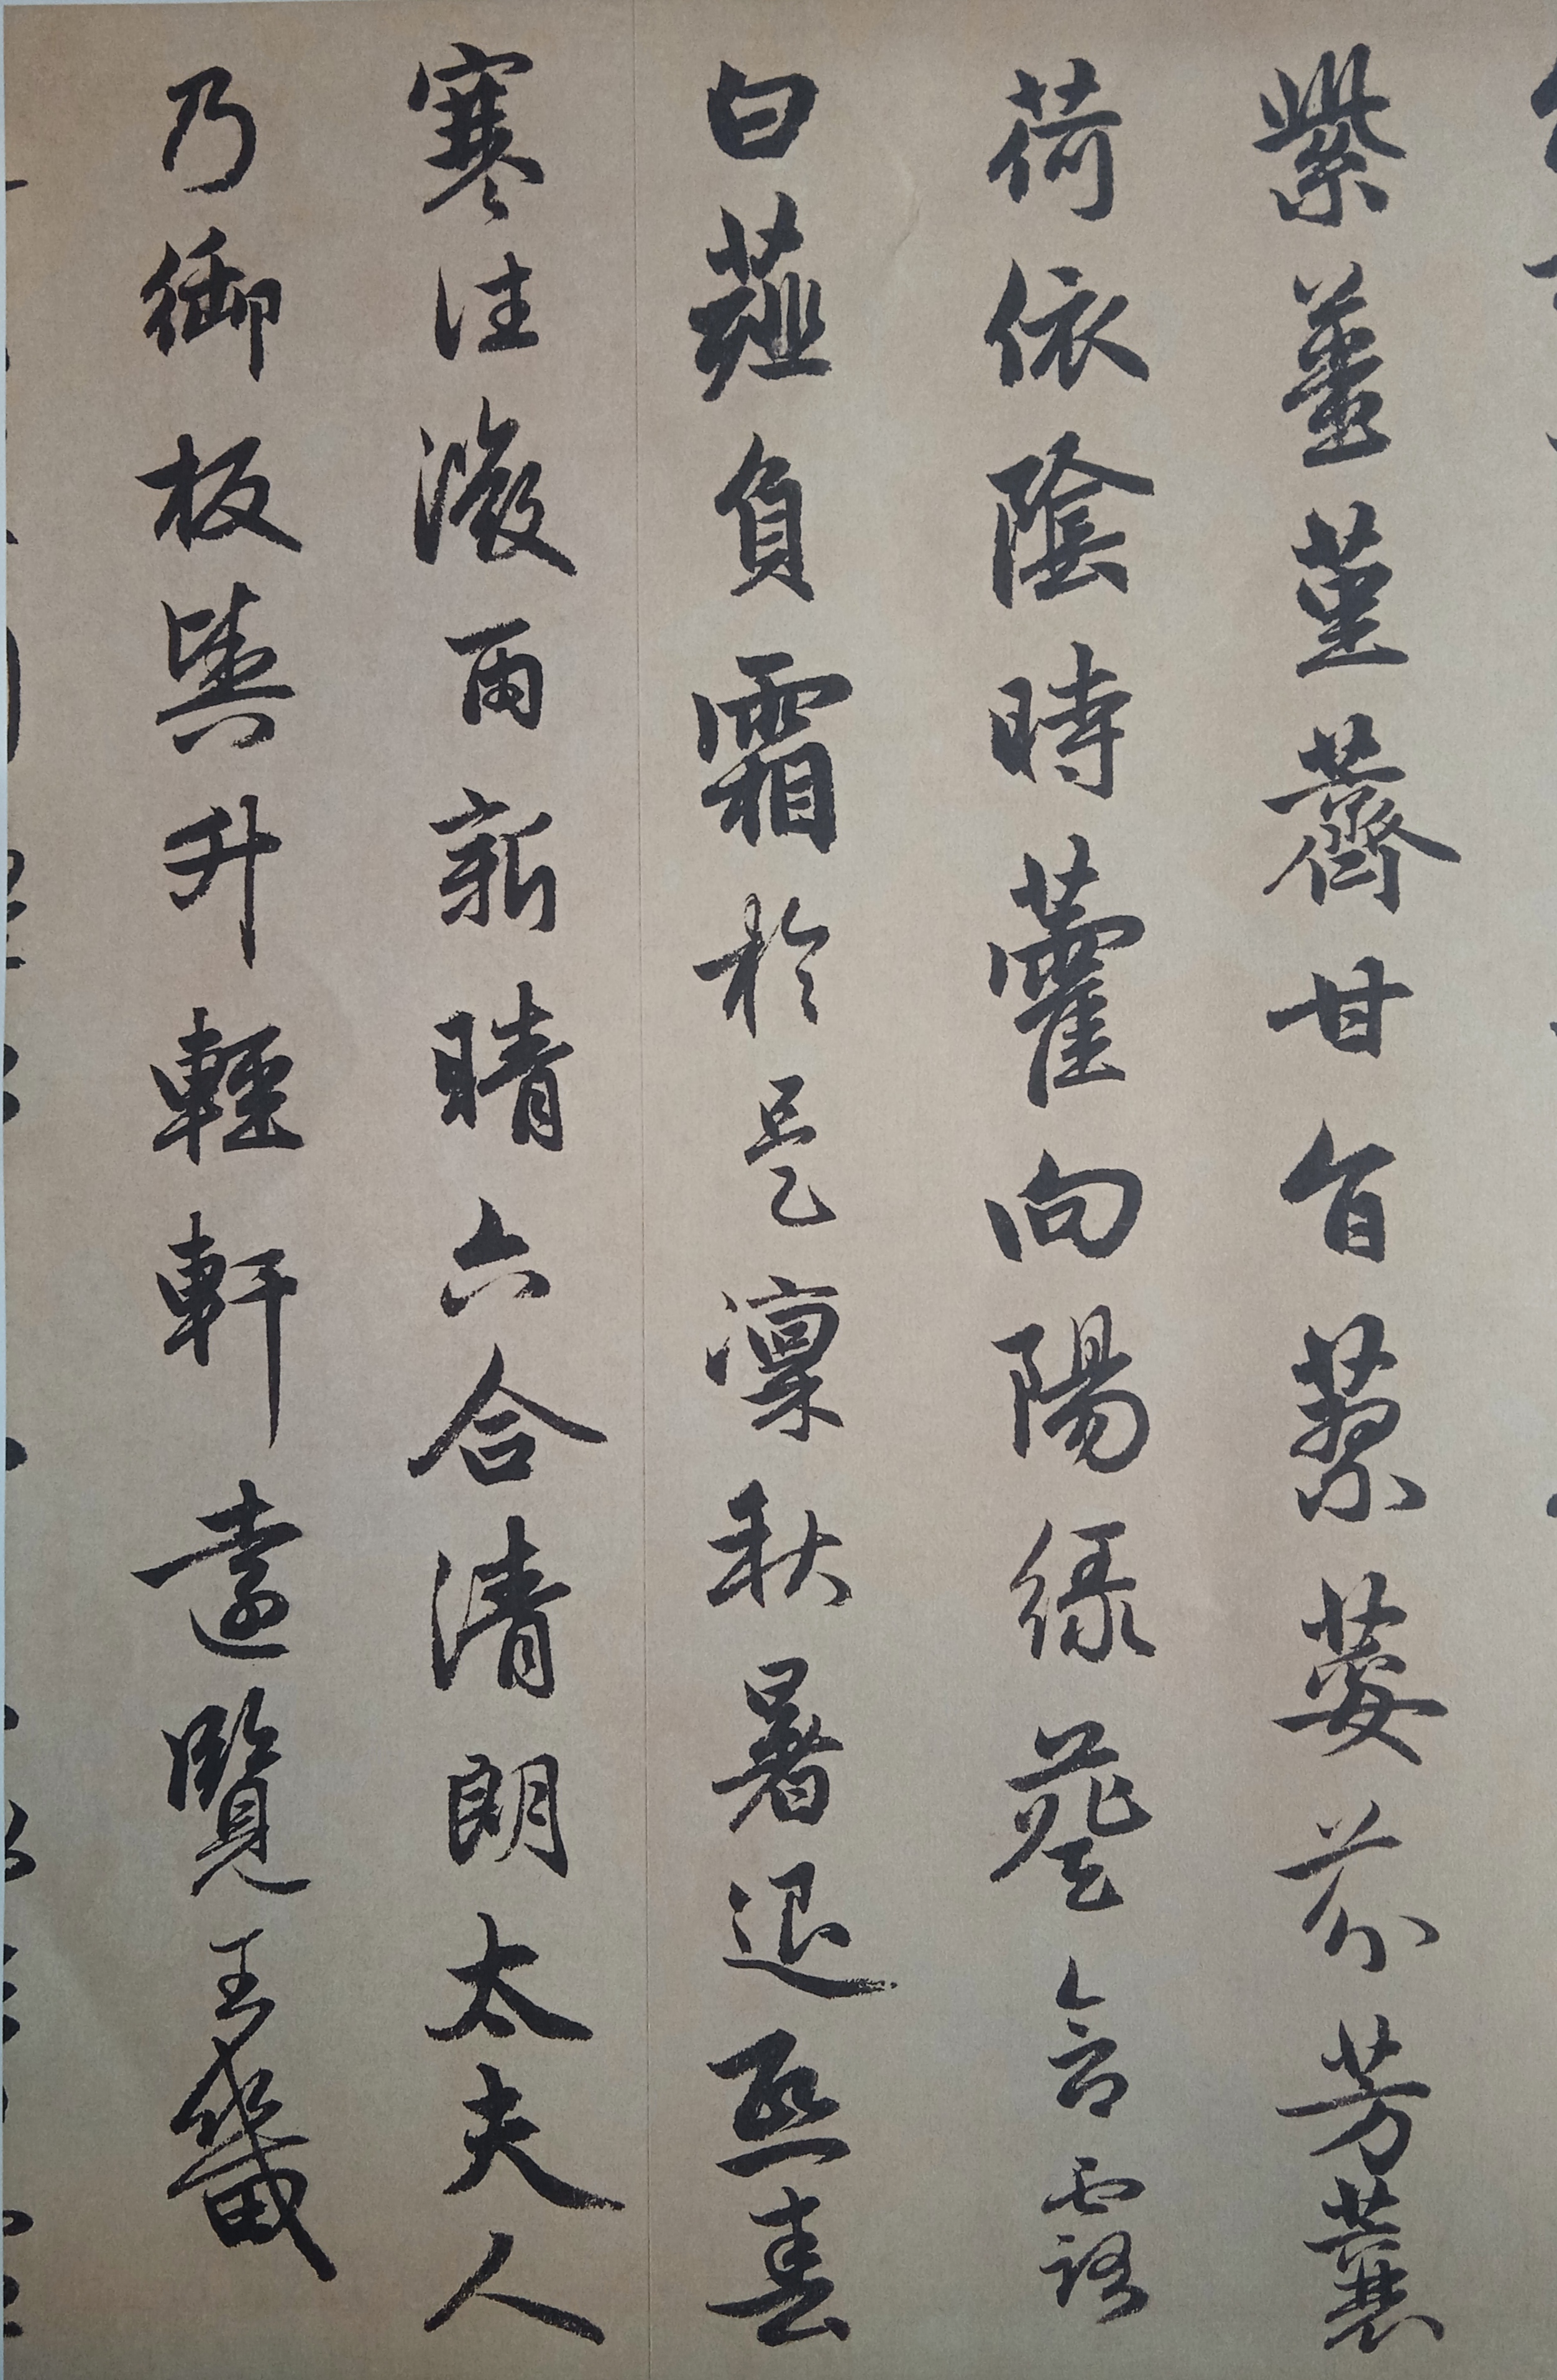 紫薑堇薺甘旨蓼荽芬芳蘘
荷依陰時藿向陽緑葵含露
白薤負霜於是凜秋暑退熙春
寒往微雨新晴六合清朗太夫人
乃御板輿升輕軒遠覽王畿